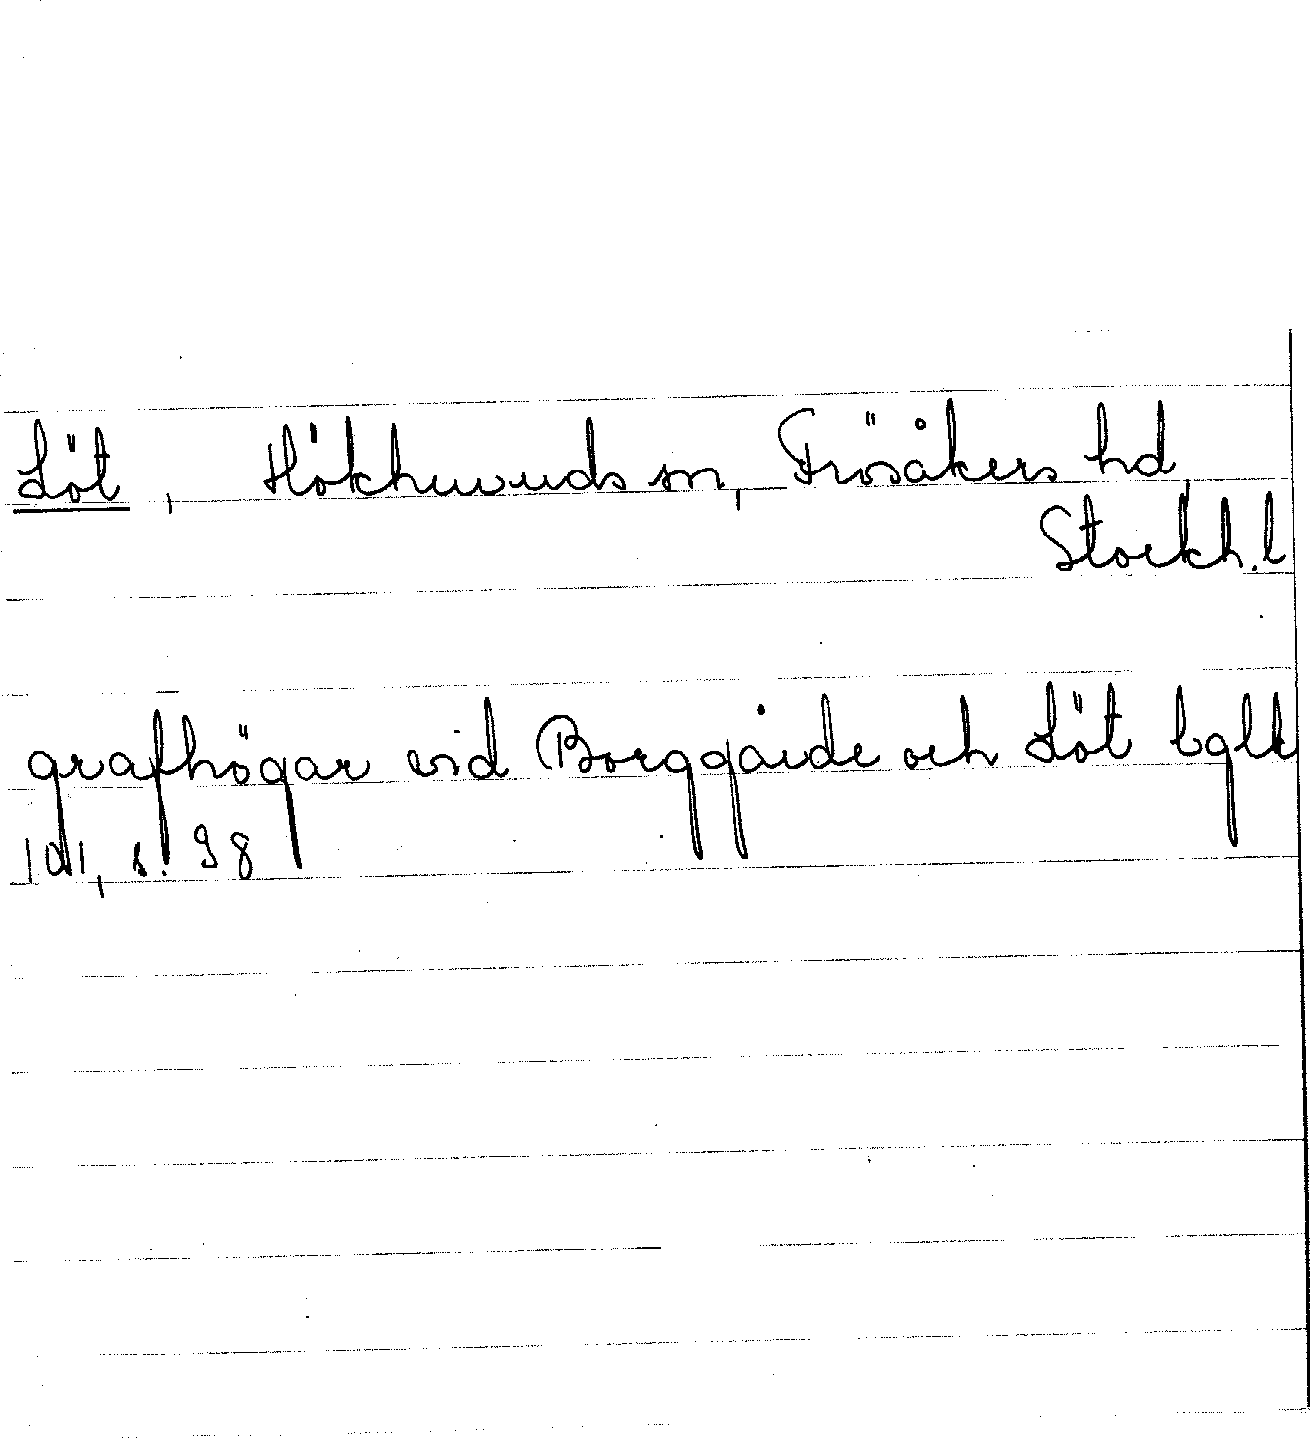 Löt, Hökhuvuds sn, Frösåkers hd
Stockh. l
grafhögar vid Borggårde och Löt bglk
101, s. 98